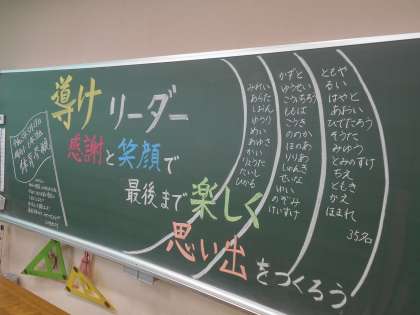 導け リーダー
感謝と笑顔で
最後まで楽しく
思い出をつくろう
みれい
あらた
しおん
ゆうり
めい
あゆさ
りょうた
たいし
ひかる
かずと
ゆうせい
こういちろう
ももは
こうき
ののか
ほのあ
りりあ
しゅんき
せいな
いい
のぞみ
けいすけ
ともや
るい
はやと
あおい
ひでたろう
そうた
みゆう
とみのすけ
ちえ
ともき
かえ
ほまれ
35名